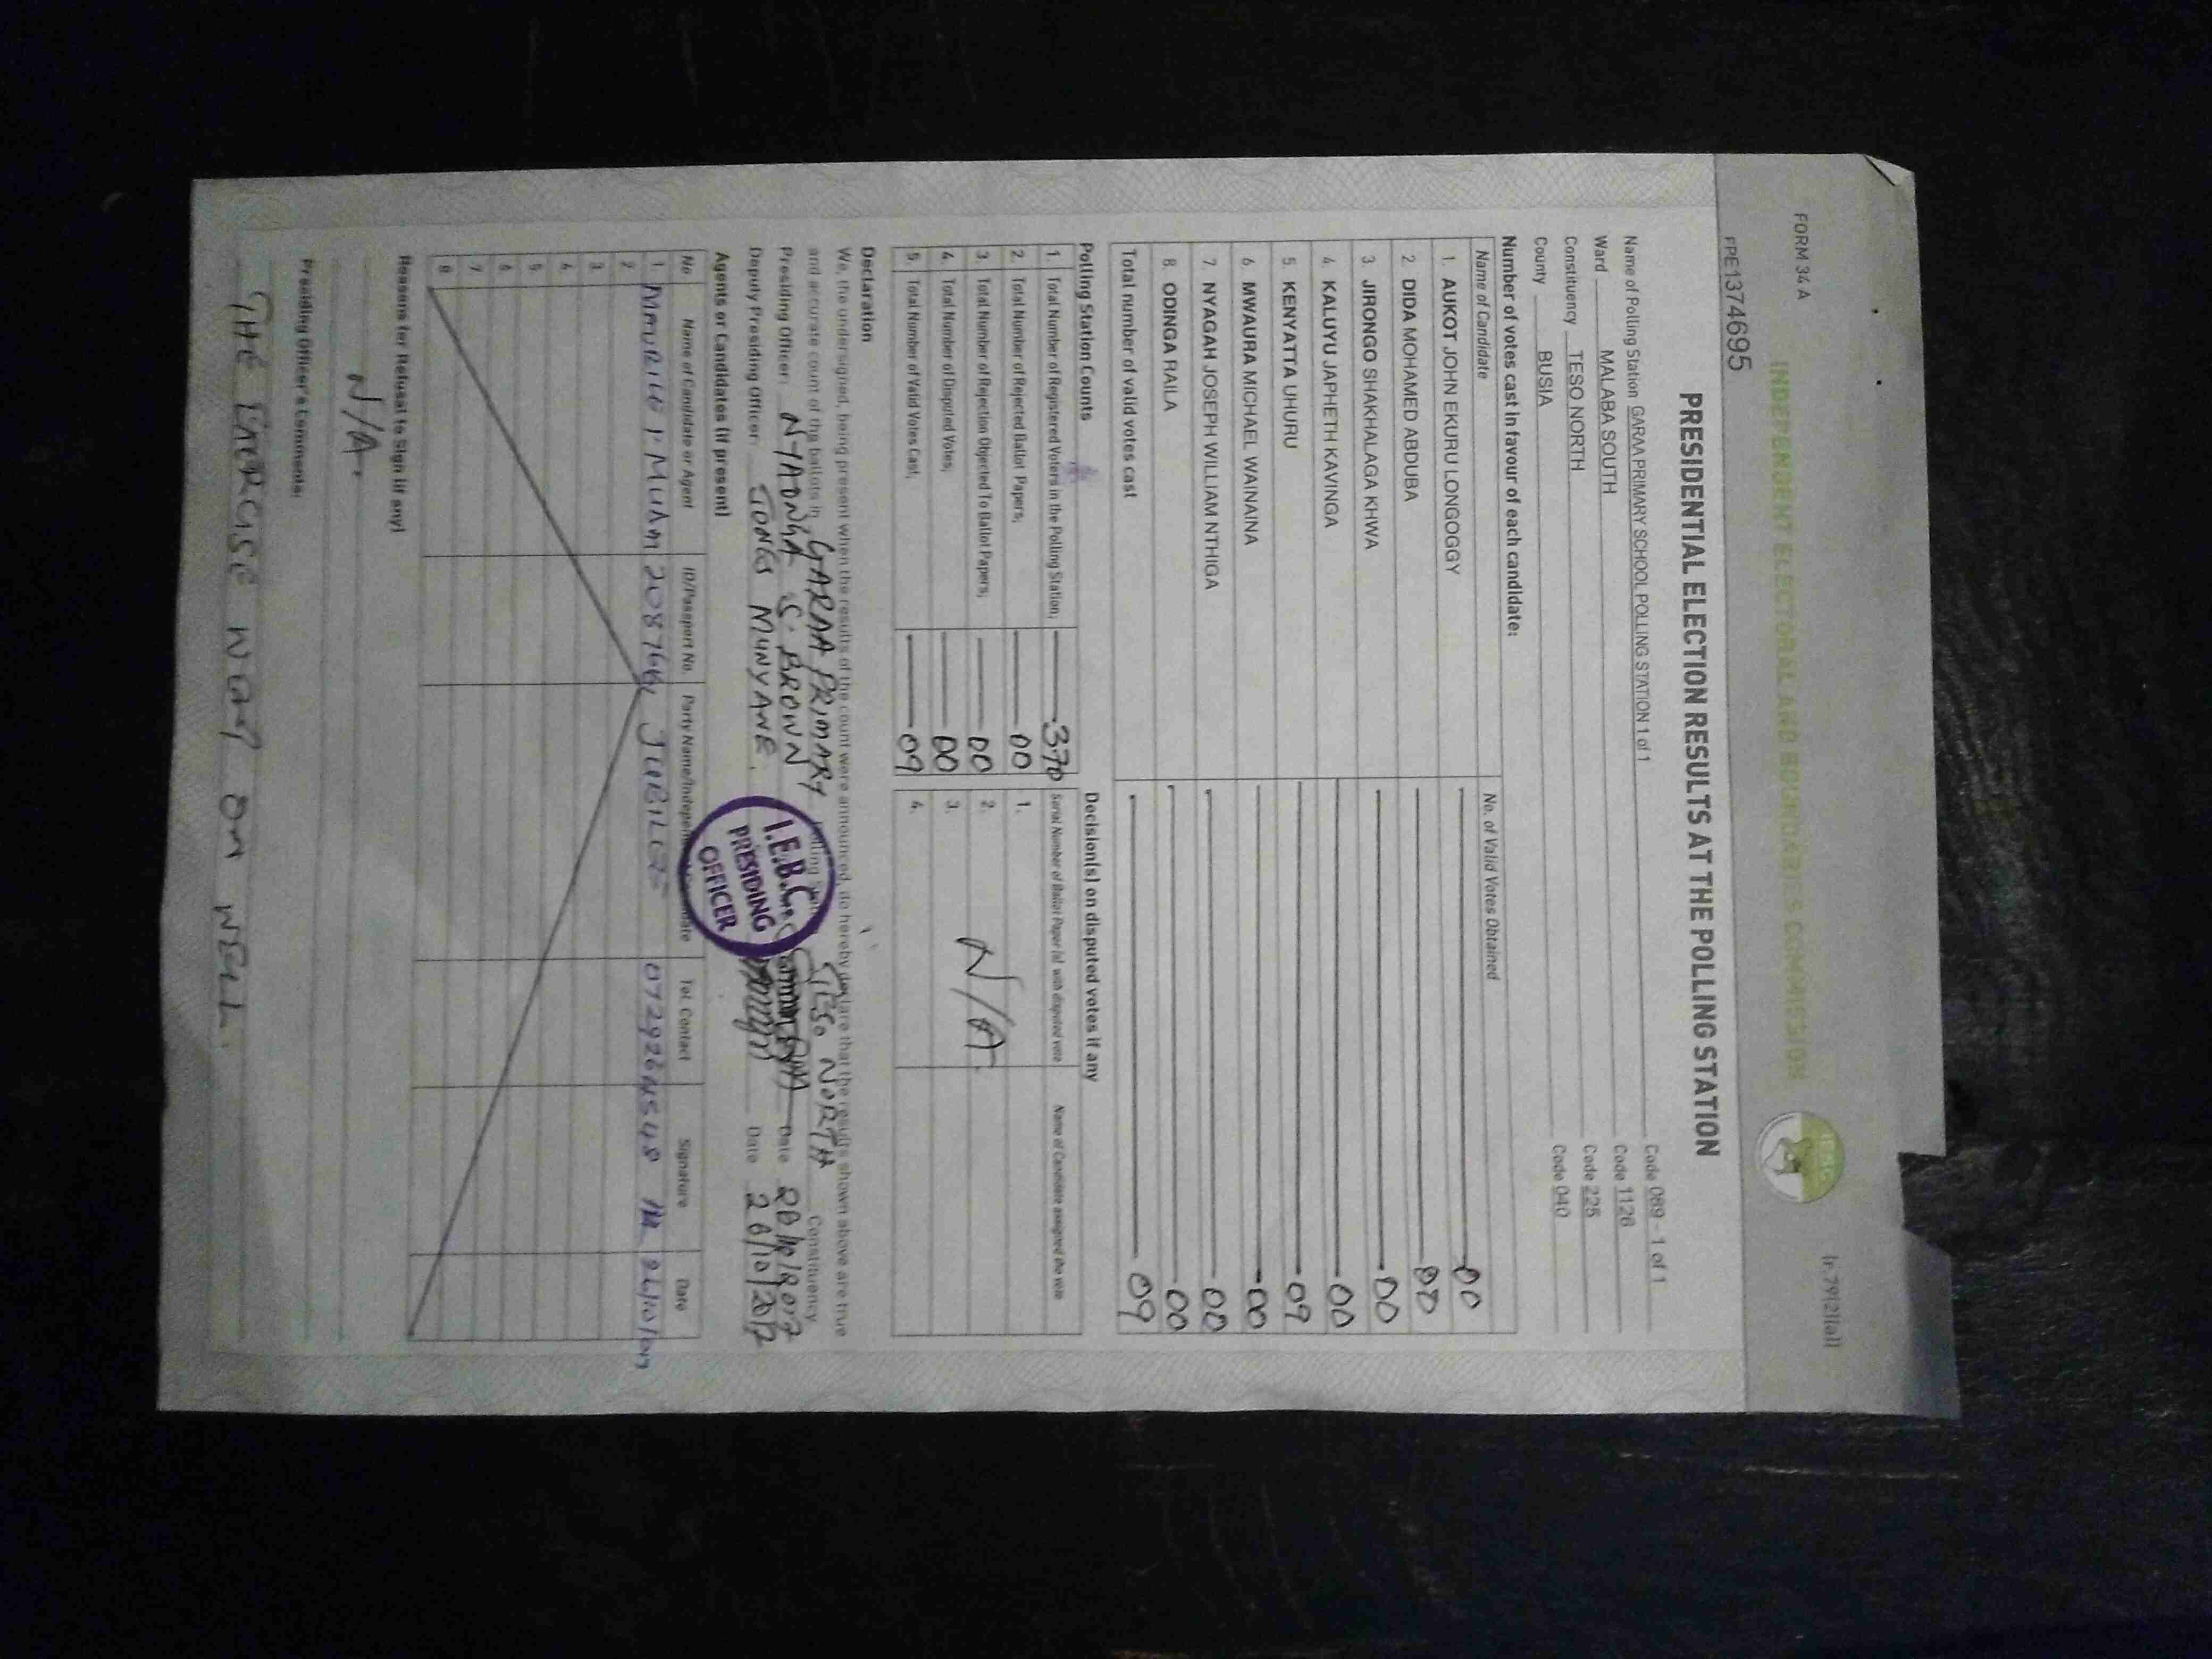 FORM 34 A
(r.79(2)(a))
INDEPENDENT ELECTORAL AND BOUNDARIES COMMISSION
IEBC
FPE1374695
PRESIDENTIAL ELECTION RESULTS AT THE POLLING STATION
Name of Polling Station GARAA PRIMARY SCHOOL POLLING STATION 1 of 1 Code 089 - 1 of 1
Ward MALABA SOUTH Code 1126
Constituency TESO NORTH Code 225
County BUSIA Code 040
Number of votes cast in favour of each candidate:
Name of Candidate No. of Valid Votes Obtained
1. AUKOT JOHN EKURU LONGOGGY 00
2. DIDA MOHAMED ABDUBA 00
3. JIRONGO SHAKHALAGA KHWA 00
4. KALUYU JAPHETH KAVINGA 00
5. KENYATTA UHURU 09
6. MWAURA MICHAEL WAINAINA 00
7. NYAGAH JOSEPH WILLIAM NTHIGA 00
8. ODINGA RAILA 00
Total number of valid votes cast 09
Polling Station Counts Decision(s) on disputed votes if any
1. Total Number of Registered Voters in the Polling Station; 370 Serial Number of Ballot Paper (s) with disputed vote Name of Candidate assigned the vote
2. Total Number of Rejected Ballot Papers; 00 1.
3. Total Number of Rejection Objected To Ballot Papers; 00 2. N/A
4. Total Number of Disputed Votes; 00 3.
5. Total Number of Valid Votes Cast; 09 4.
Declaration
We, the undersigned, being present when the results of the count were announced, do hereby declare that the results shown above are true
and accurate count of the ballots in GARAA PRIMARY Polling TESO NORTH Constituency
Presiding Officer: NYAONGA S. BROWN Date
Deputy Presiding Officer: MUNYANE. Date 26/10/2017
I.E.B.C
PRESIDING
OFFICER
Agents or Candidates (if present)
No Name of Candidate or Agent ID/Passport No. Party Name/Independent Candidate Tel. Contact Signature Date
1 JUBILEE
2
3
4
5
6
7
8
Reasons for Refusal to Sign (if any)
N/A.
Presiding Officer's Comments:
THE EXERCISE WENT ON WELL.